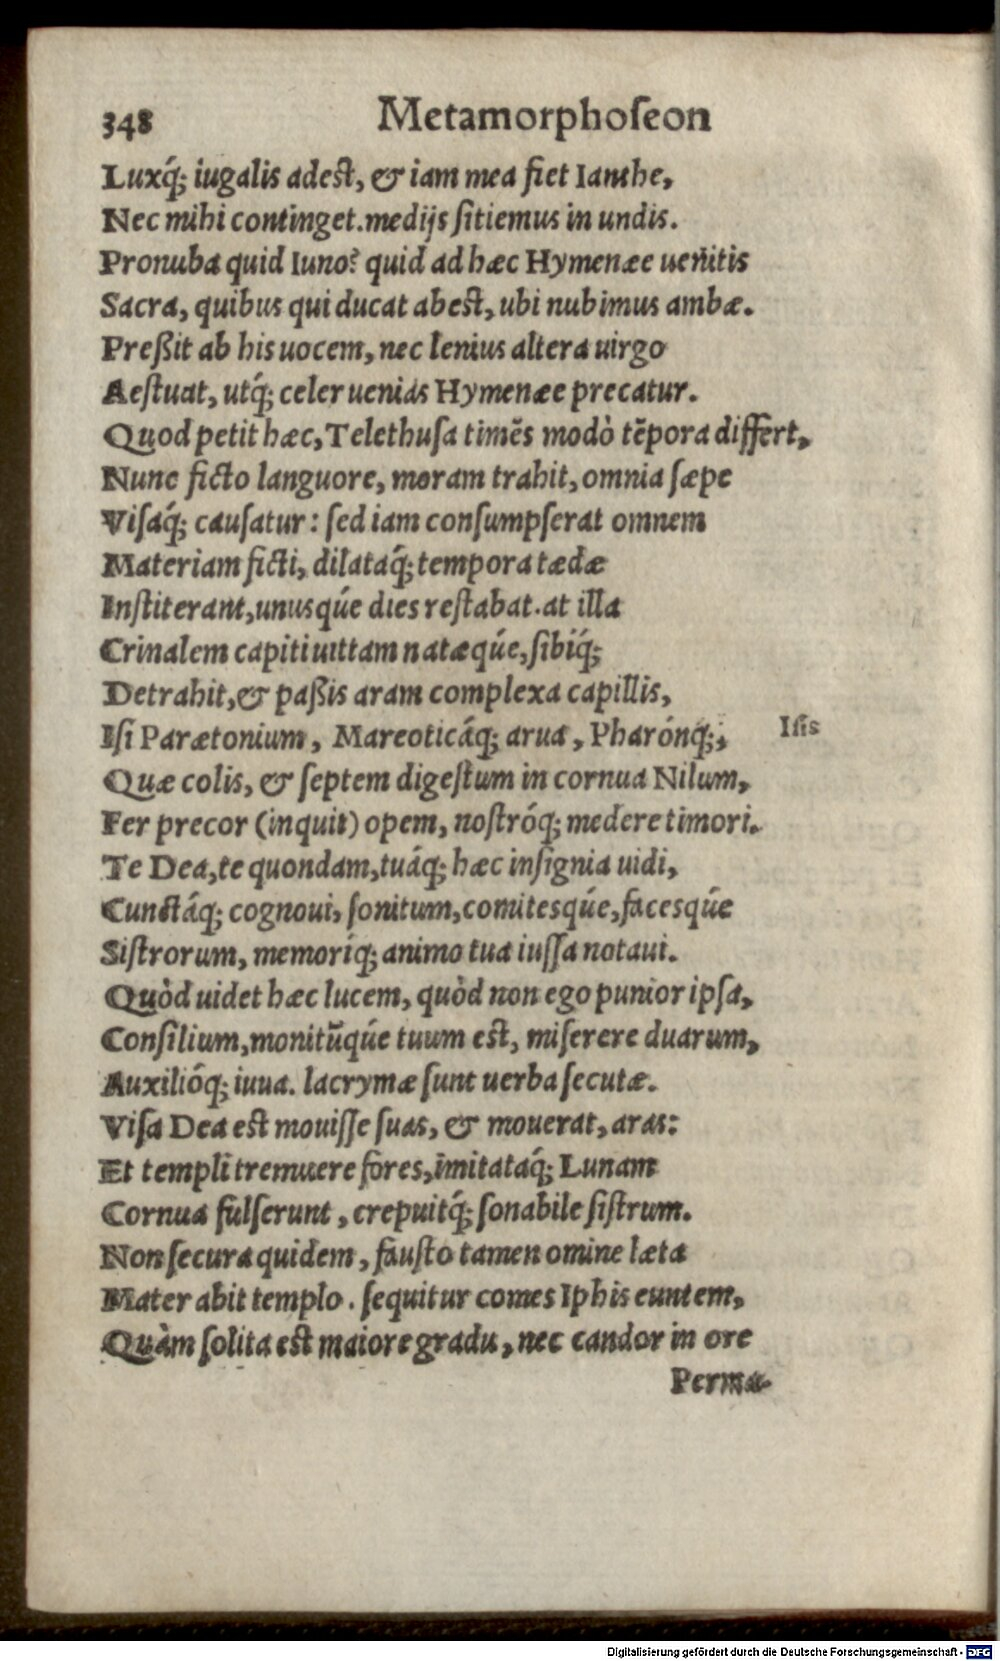 348 Metamorphoſeon
Luxq́; iugalis adeſt, & iam mea fiet Ianthe,
Nec mihi continget. medijs ſitiemus in undis.
Pronuba quid Iuno? quid ad hæc Hymenæe uenitis
Sacra, quibus qui ducat abeſt, ubi nubimus ambæ.
Preßit ab his uocem, nec lenius altera uirgo
Aeſtuat, utq́; celer uenias Hymenæe precatur.
Quod petit hæc, Telethuſa timẽs modò tẽpora differt,
Nunc ficto languore, moram trahit, omnia ſæpe
Viſaq́; cauſatur: ſed iam conſumpſerat omnem
Materiam ficti, dilataq́; tempora tædæ
Inſtiterant, unusqúe dies reſtabat. at illa
Crinalem capiti uittam natæqúe, ſibiq́;
Detrahit, & paßis aram complexa capillis,
Iſi Parætonium, Mareoticáq; arua, Pharónq;,
Iſis
Quæ colis, & ſeptem digeſtum in cornua Nilum,
Fer precor (inquit) opem, noſtróq; medere timori.
Te Dea, te quondam, tuáq; hæc inſignia uidi,
Cunctáq; cognoui, ſonitum, comitesqúe, facesqúe
Siſtrorum, memoríq; animo tua iuſſa notaui.
Quòd uidet hæc lucem, quòd non ego punior ipſa,
Conſilium, monitũqúe tuum eſt, miſerere duarum,
Auxilióq; iuua. lacrymæ ſunt uerba ſecutæ.
Viſa Dea eſt mouiſſe ſuas, & mouerat, aras:
Et templi tremuere fores, imitataq́; Lunam
Cornua fulſerunt, crepuitq́; ſonabile ſiſtrum.
Non ſecura quidem, fauſto tamen omine læta
Mater abit templo. ſequitur comes Iphis euntem,
Quàm ſolita eſt maiore gradu, nec candor in ore
Perma-
Digitalisierung gefördert durch die Deutsche Forschungsgemeinschaft - DFG